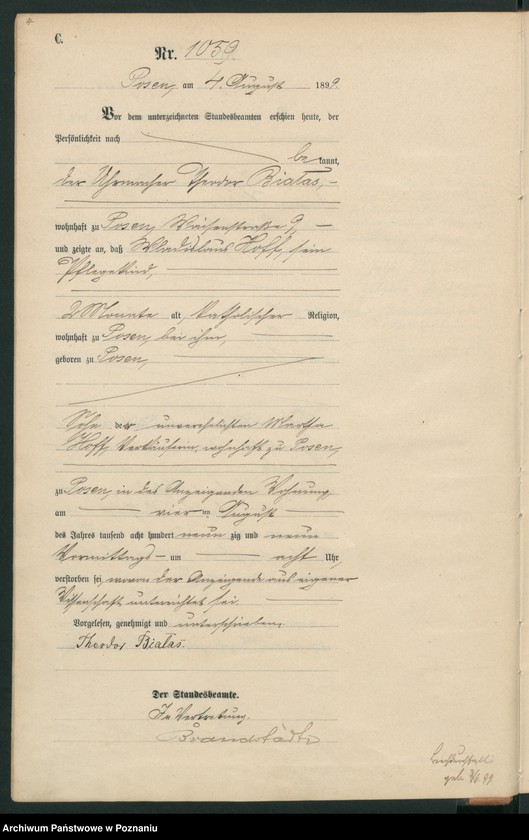 C.
Nr. 1059.
Posen, am 4. August 1899.
Vor dem unterzeichneten Standesbeamten erschien heute, der
Persönlichkeit nach
bekannt,
der Uhrmacher Theodor Białas,
wohnhaft zu Posen, Waisenstraße 9,
und zeigte an, daß Wladislaus Hoff, sein
Pflegekind,
2 Monate alt, katholischer Religion,
wohnhaft zu Posen, bei ihm,
geboren zu Posen,
Sohn der unverehelichten Martha
Hoff, Verkäuferin, wohnhaft zu Posen,
zu Posen, in des Anzeigenden Wohnung,
am vier ten August
des Jahres tausend acht hundert neun zig und neun
Vormittags um acht Uhr,
verstorben sei, wovon der Anzeigende aus eigener
Wissenschaft unterrichtet sei.
Vorgelesen, genehmigt und unterschrieben.
Theodor Białas.
Der Standesbeamte.
In Vertretung.
Brandstädt
Archiwum Państwowe w Poznaniu